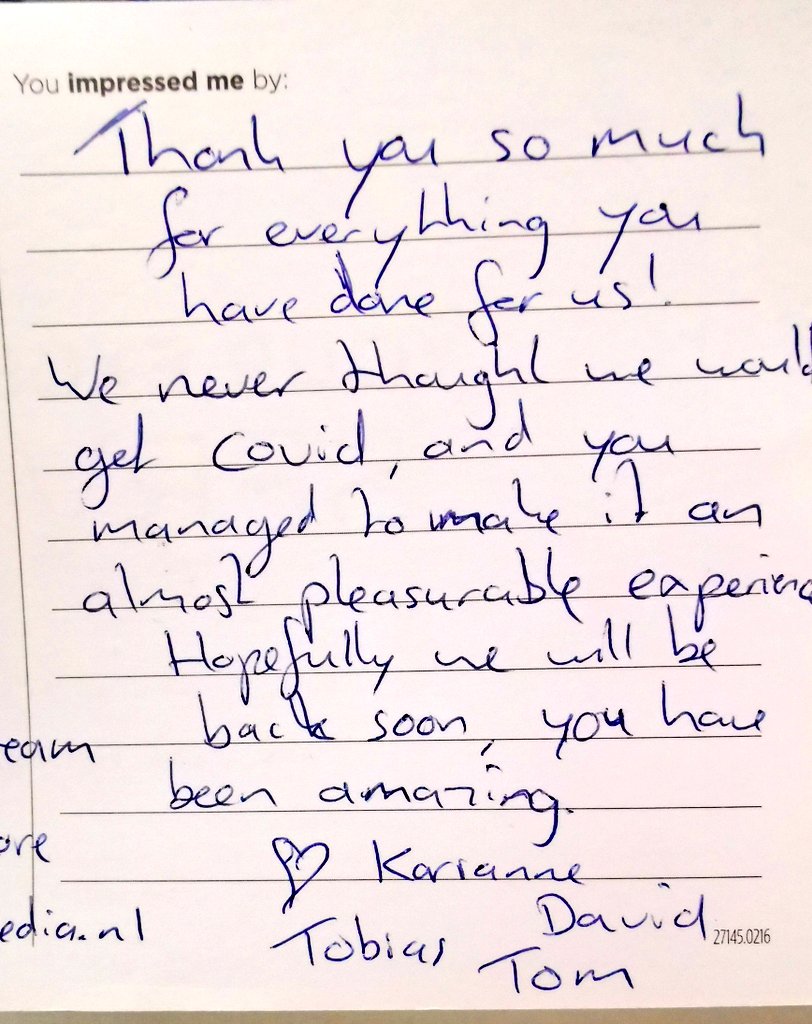 You impressed me by:
Thank you so much
for everything you
have done for us!
We never thought we would
get Covid, and you
managed to make it an
almost pleasurable experienc
Hopefully we will be
back soon, you have
been amazing.
♡ Karianne
Tobias David
Tom
eam
ore
edia.nl
27145.0216